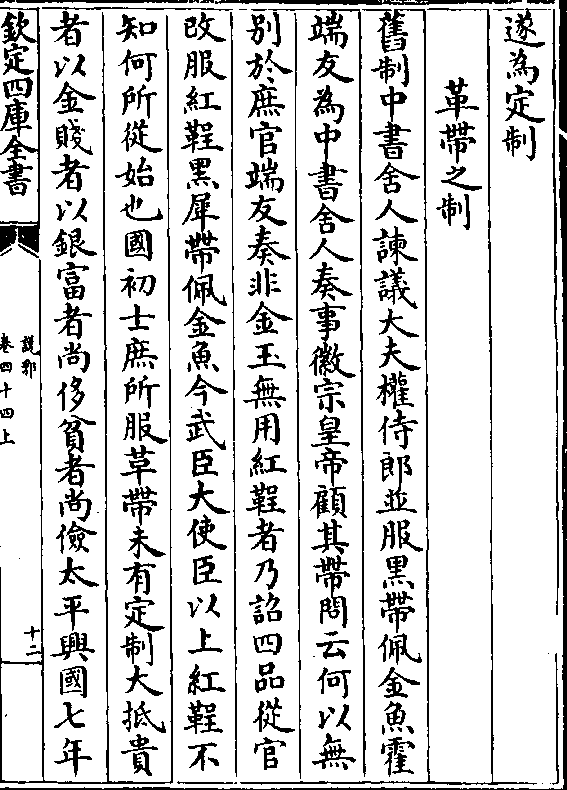 遂為定制
革帶之制
舊制中書舍人諫議大夫權侍郎並服黑帶佩金魚霍
端友為中書舍人奏事徽宗皇帝顧其帶問云何以無
别於庶官端友奏非金玉無用紅鞓者乃詔四品從官
改服紅鞓黑犀帶佩金魚今武臣大使臣以上紅鞓不
知何所從始也國初士庶所服草帶未有定制大抵貴
者以金賤者以銀富者尚侈貧者尚儉太平興國七年
欽定四庫全書
說郛
卷四十四上
十二